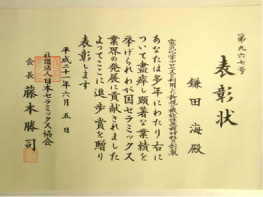 第九六七号
表彰状
鎌田 海殿
あなたは多年にわたり右に
ついて尽瘁し顕著な業績を
挙げられわが国セラミックス
業界の発展に貢献されました
よってここに進歩賞を贈り
表彰します
平成二十一年六月五日
社団法人日本セラミックス協会
会長 藤本勝司